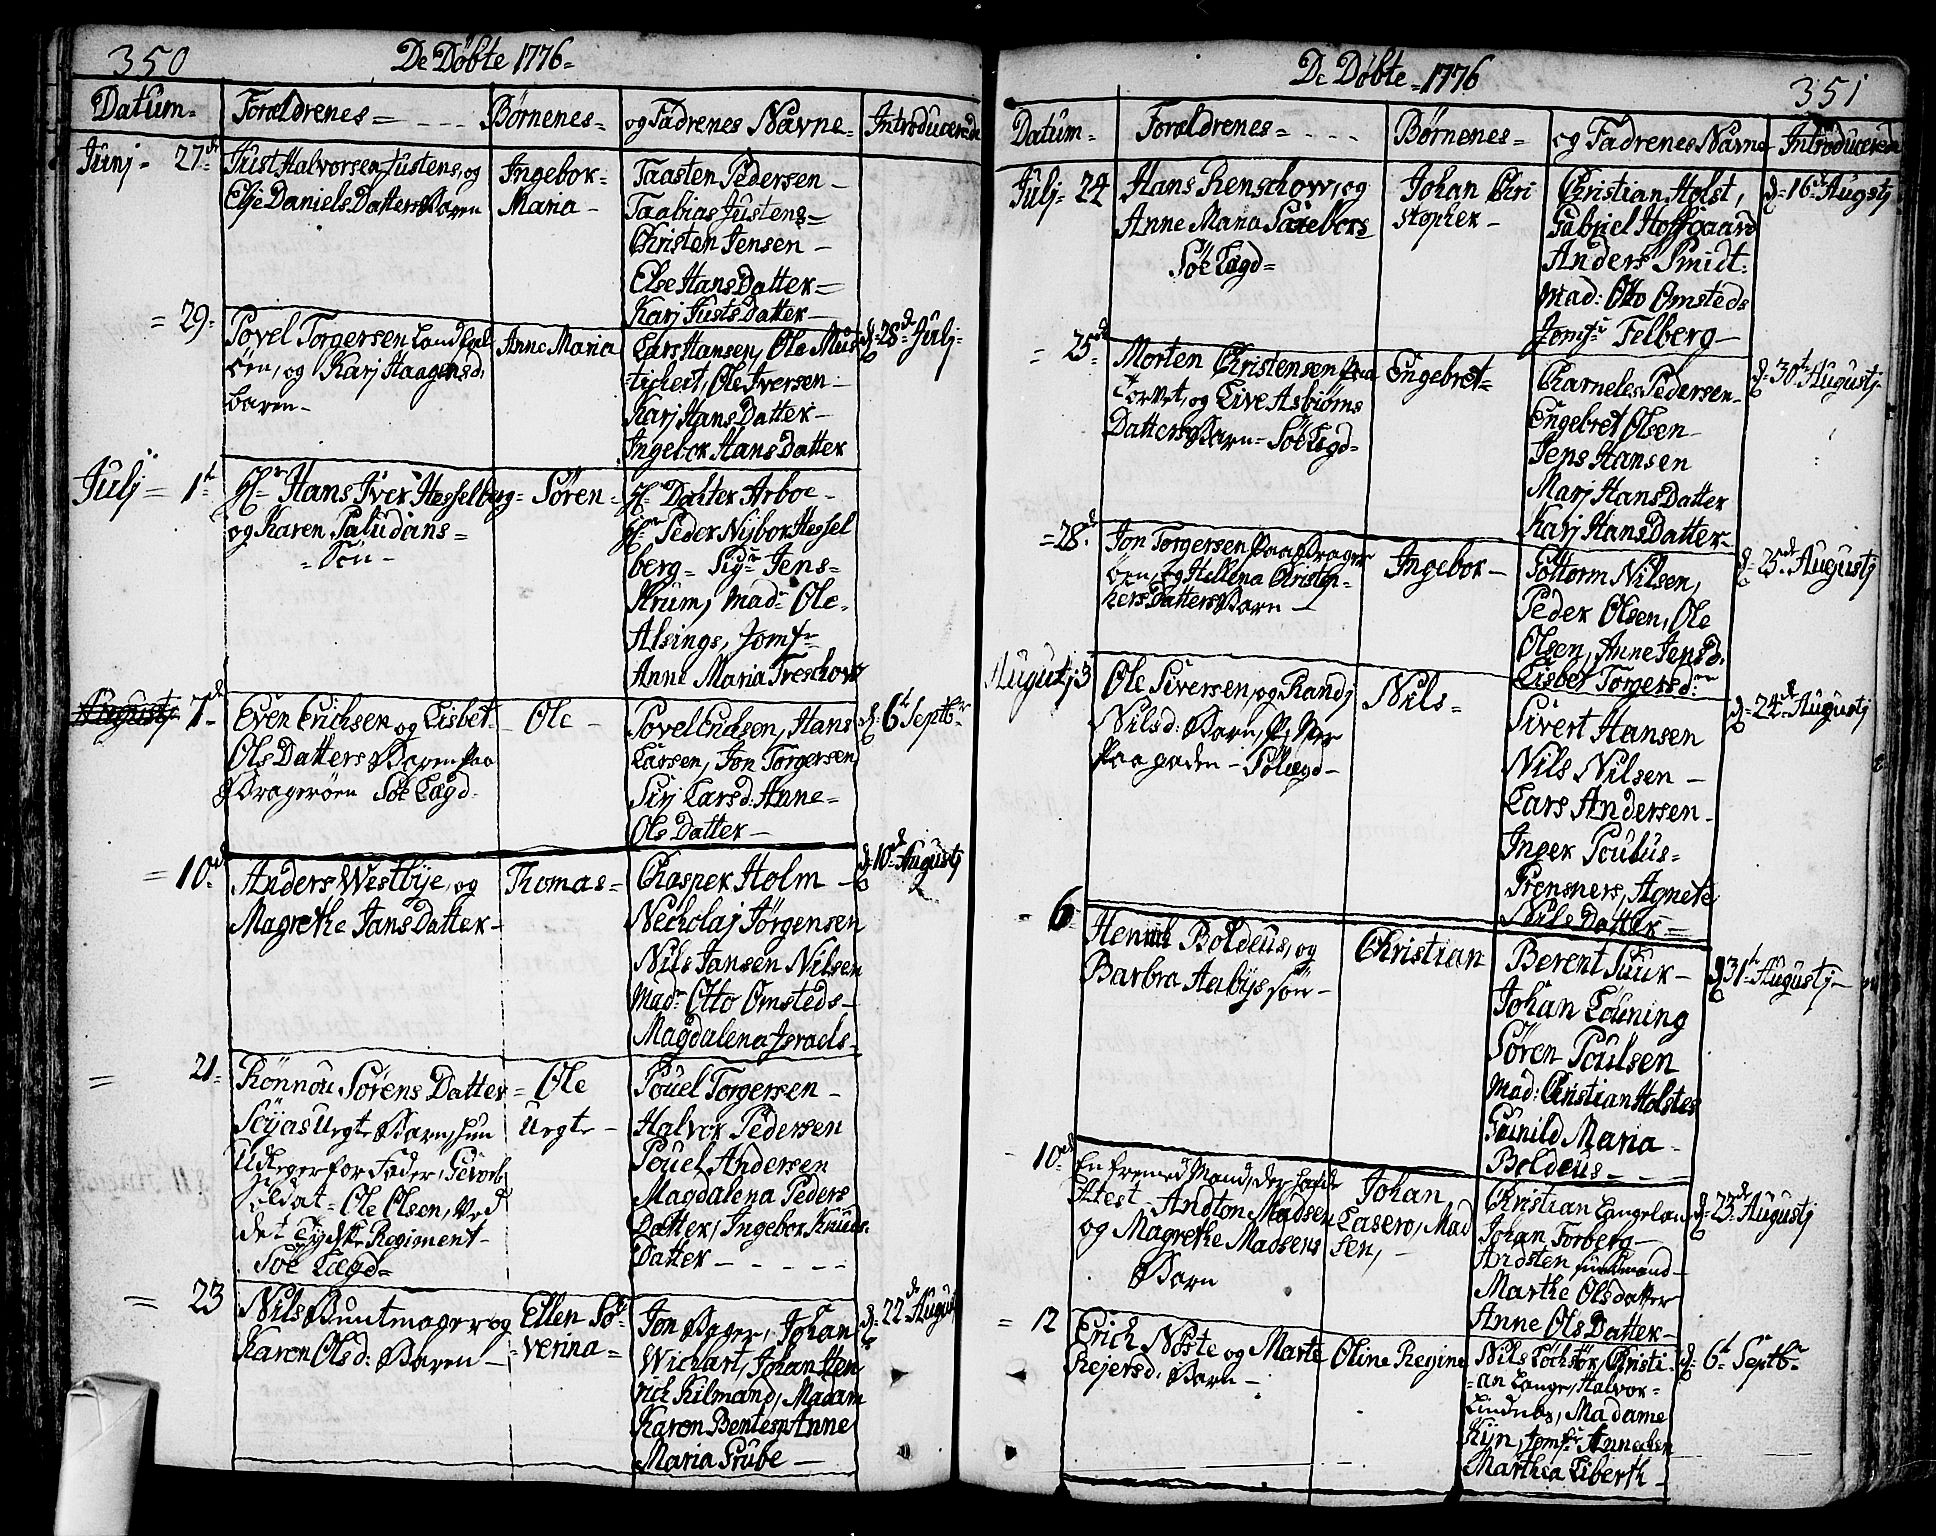 350
De Døbte 1776
Datum
Forældrenes
Børnenes
og Fadrenes Navne
Introducered
Junj 27
Just Halvorsen Justens, og
Elje Daniels Datters Barn
Ingebor
Maria
Taasten Pedersen
Taabias Justens
Christen Jensen
Else Hans Datter
Karj Justs Datter
29
Povel Torgersen
og Karj Haagensd:
Barn
Anne Maria
Lars Hansen, Ole Mus
tichert, Ole Iversen
Karj Hans Datter
Ingebor Hans Datter
d 28 Julj
Julj 1
Hr Hans Iver Hesselberg
og Karen Paludans
Sön
Sören
Hr Dalter Arboe
Hr Peder Nijbor Hessel
berg Sigr Jens
Krum, Madr Ole
Alsings, Jomfr
Anne Maria Treschow
Augustj 7
Even Erichsen og Lisbet
Ols Datters Barn Paa
Bragerøen Söe Lægd
Ole
Povel Endsen, Hans
Lassen, Jon Torgersen
Sirj Larsd: Anne
Ols Datter
d 6 Septbr
10
Anders Westbye, og
Magrethe Jans Datter
Thomas
Chasper Holm
Necholaj Jørgensen
Nils Jansen Nilsen
Madr Otto Omsteds
Magdalena Jsraels
d 10 Augustj
21
Rönnou Sørens Datter
Uegte Barn, hun
Udleger for Fader,
Soldat Ole Olsen, Ved
det Tydske Regiment
Söe Lægd
Ole
Uegte
Pouel Torgersen
Halvor Pedersen
Pouel Andersen
Magdalena Peders
Datter, Ingebor Knuds
Datter
23
Nils Buntmager og
Karen Olsd: Barn
Ellen Sö
verina
Jon Bager, Johan
Wichart, Johan Hen
rich Kilmand, Madam
Karen Bentesn Anne
Maria Grube
d 22 August
De Døbte 1776
351
Datum
Forældrenes
Børnenes
og Fadrenes Navne
Introducered
Julj 24
Hans Renschow, og
Anne Maria Parebors
Söe Lægd
Johan Chri
stopher
Christian Holst,
Gabriel Hoffgaard
Anders Smidt
Mad: Otto Omsteds
Jomfr Felberg
d 16 Augstj
25
Morten Christensen Paa
Torvet, og Live Asbiøms
Datters Barn Söe Lægd
Engebret
Charneles Pedersen
Engebret Olsen
Jens Hansen
Marj Hans Datter
Karj Hans Datter
d 30 Augustj
28
Jon Torgersen Paa Brager
öen, og Hellena Christen
hers Datters Barn
Ingebor
Gottorm Nilsen,
Peder Olsen, Ole
Olsen, Anne Jensd:
Lisbet Torgersd:
d 25 Augustj
Augustj 3
Ole Siversen, og Randj
Nilsd: Barn,
Sölægd
Nils
Sivert Hansen
Nils Nilsen
Lars Andersen
Inger Poulus
Prensners, Agnete
Nils Datter
d 24 Augustj
6
Henrich Boldeus, og
Barbra Aabÿs sön
Christian
Berent Suur
Johan Löuning
Sören Poulsen
Mad: Christian Holstes
Gunild Maria
Boldeus
d 31 Augustj
10
En fremed Mand, der hafde
Atest Andton Madsen
og Magrethe Madsens
Barn
Johan
Casero, Mad
sen,
Christian Langeland
Johan Forberg
Andsten
Marthe Olsdatter
Anne Ols Datter
d 23 Augustj
12
Erich Nöste og Marte
Rejersd: Barn
Oline Regine
Nils Lochstör, Christi
an Lange, Halvor
Madame
Kijn, Jomfr Annechen
Marthea Liberth
d 6 Septbr